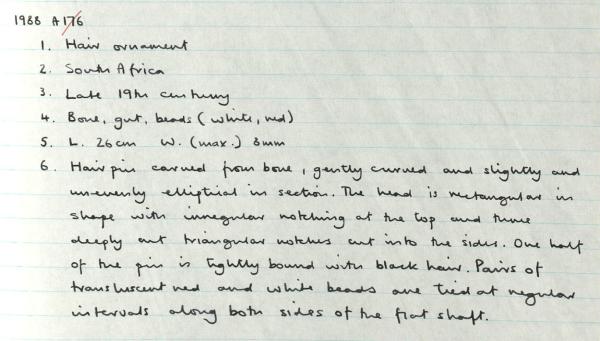 1988 A176
1. Hair ornament
2. South Africa
3. Late 19th century
4. Bone, gut, beads (white, red)
5. L. 26cm W. (max.) 8mm
6. Hairpin carved from bone, gently curved and slightly and
unevenly elliptial in section. The head is rectangular in
shape with irregular notching at the top and three
deeply cut triangular notches cut into the sides. One half
of the pin is tightly bound with black hair. Pairs of
transluscent red and white beads are tied at regular
intervals along both sides of the flat shaft.